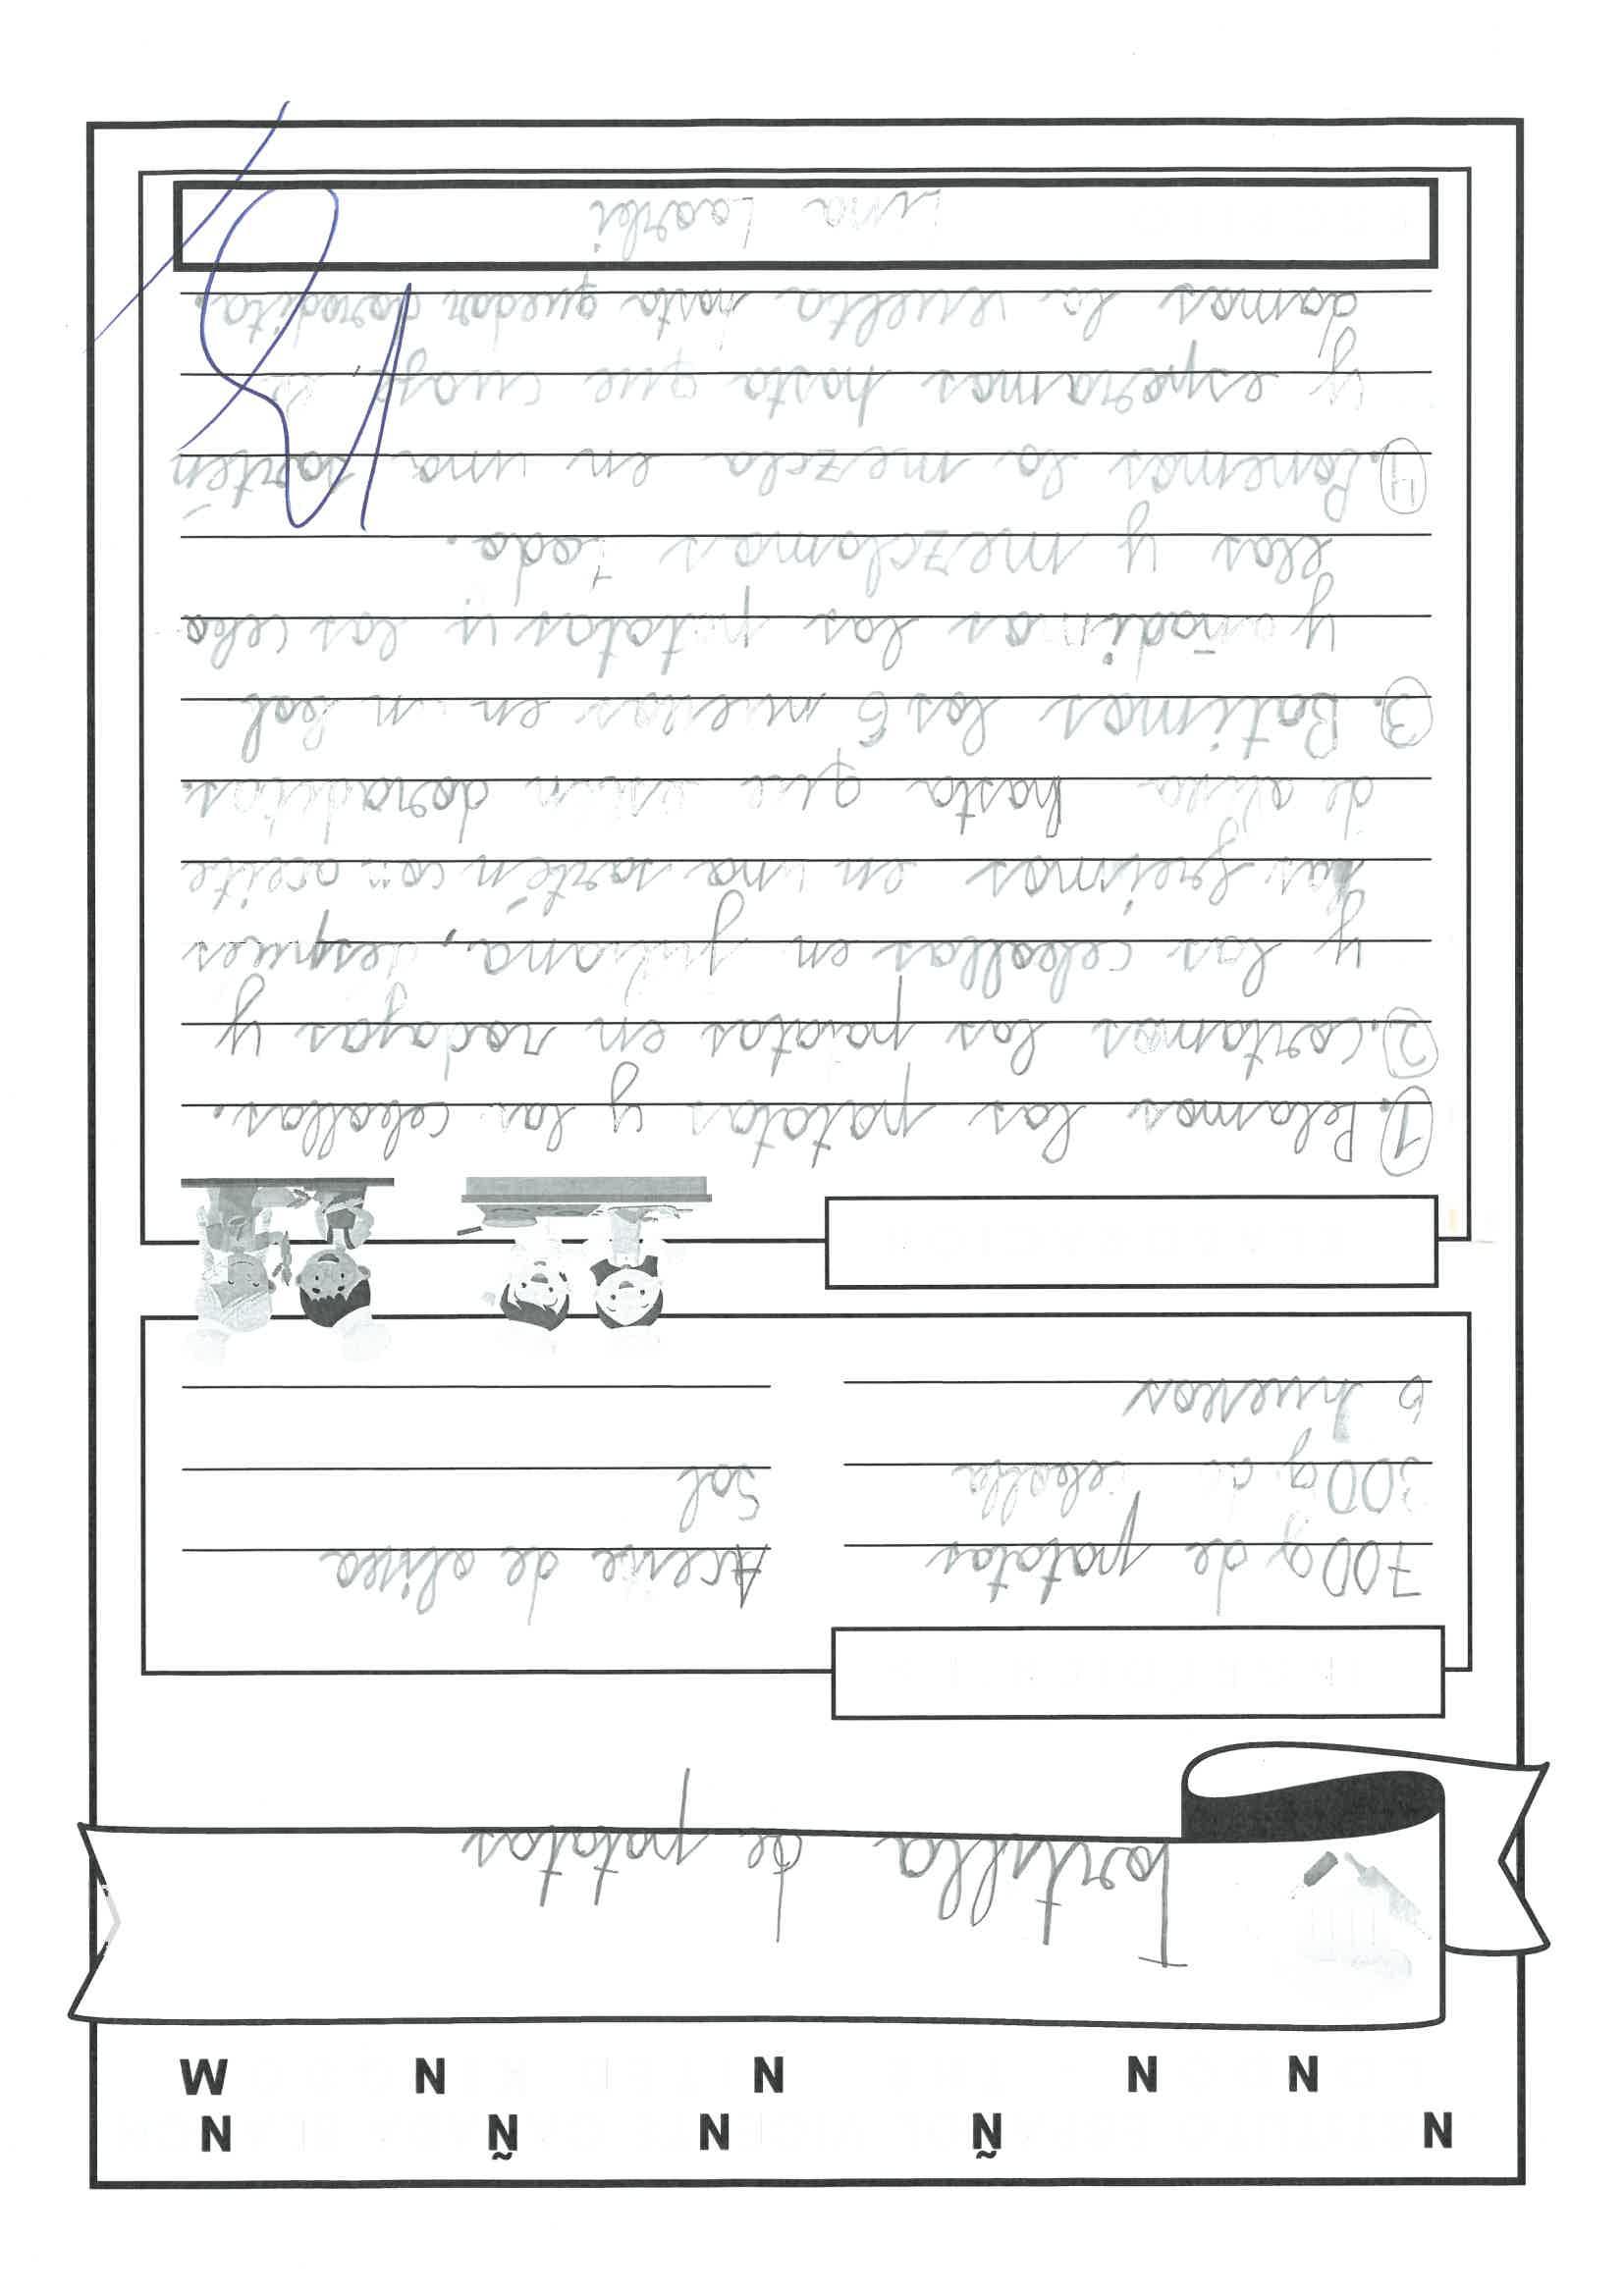 Tortilla de patatas
700g de patatas
300g de cebolla
6 huevos
Aceite de oliva
Sal
1. Pelamos las patatas y las cebollas.
2. Cortamos las patatas en rodajas y
y las cebollas en juliana, despues
las freimos en una sartén con aceite
de oliva hasta que estén doraditas.
3. Batimos los 6 huevos en un bol
y añadimos las patatas y las cebo
llas y mezclamos todo.
4. Ponemos la mezcla en una sartén
y esperamos hasta que cuaje, le
damos la vuelta hasta quedar doradita.
Lina Laarbi